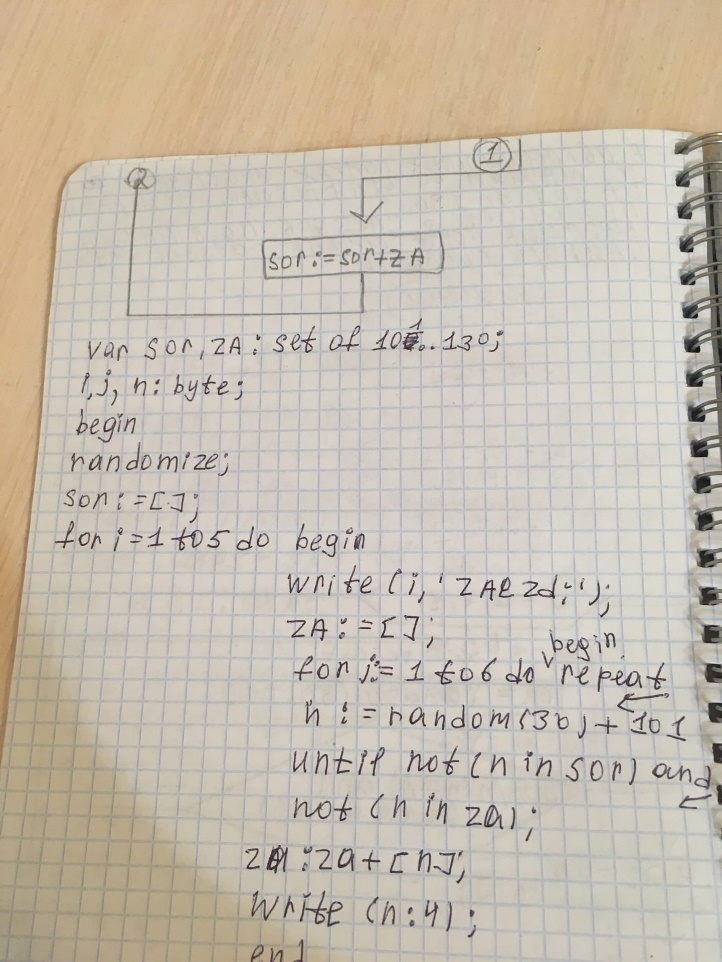 2
1
sor:=sor+ZA
var sor, ZA: set of 101..130;
i,j, n: byte;
begin
randomize;
sor:=[.];
for i=1 to5 do begin
write (i,' ZAEZd:');
ZA:=[];
for j:=1 to6 do begin repeat
n:=random(30)+101
until not(n in sor) and
not (n in za);
ZA:za+[n];
write (n:4);
end